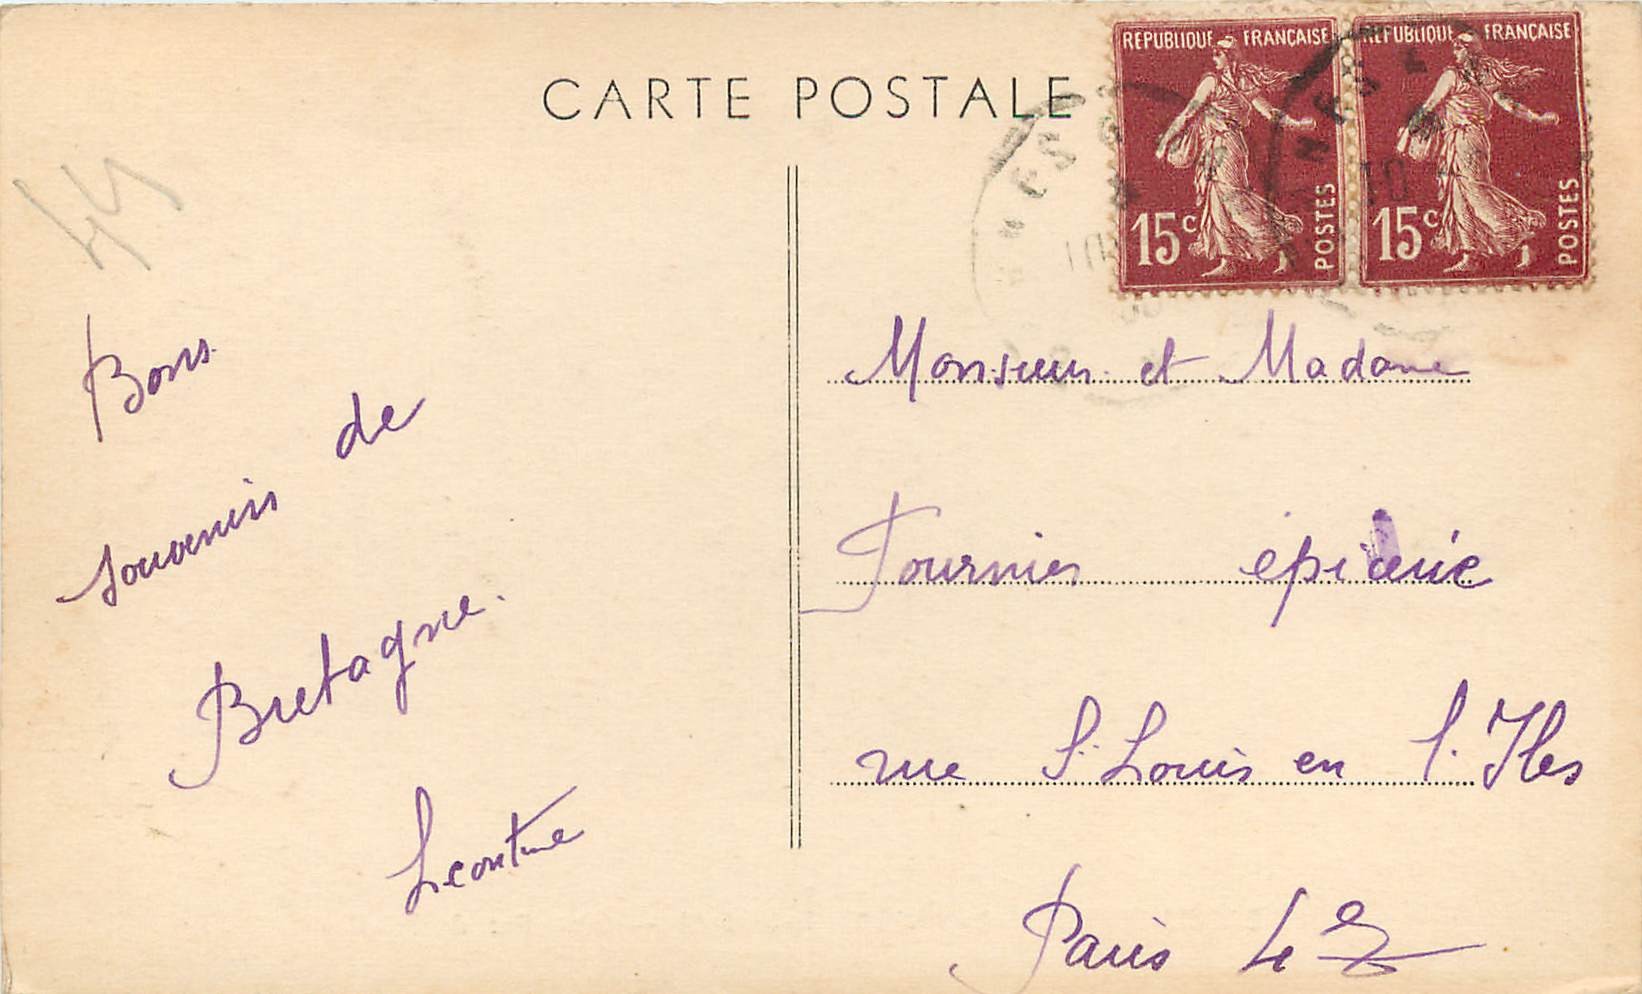 CARTE POSTALE
REPUBLIQUE FRANÇAISE
15c
POSTES
REPUBLIQUE FRANÇAISE
15c
POSTES
44
Bons
souvenirs de
Bretagne.
Leontine
Monsieur et Madame
Fournier épicerie
rue St Louis en l'Iles
Paris 4e